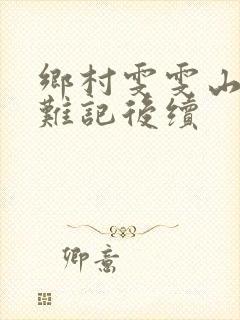 鄉村雯雯山
難記後續
卿意